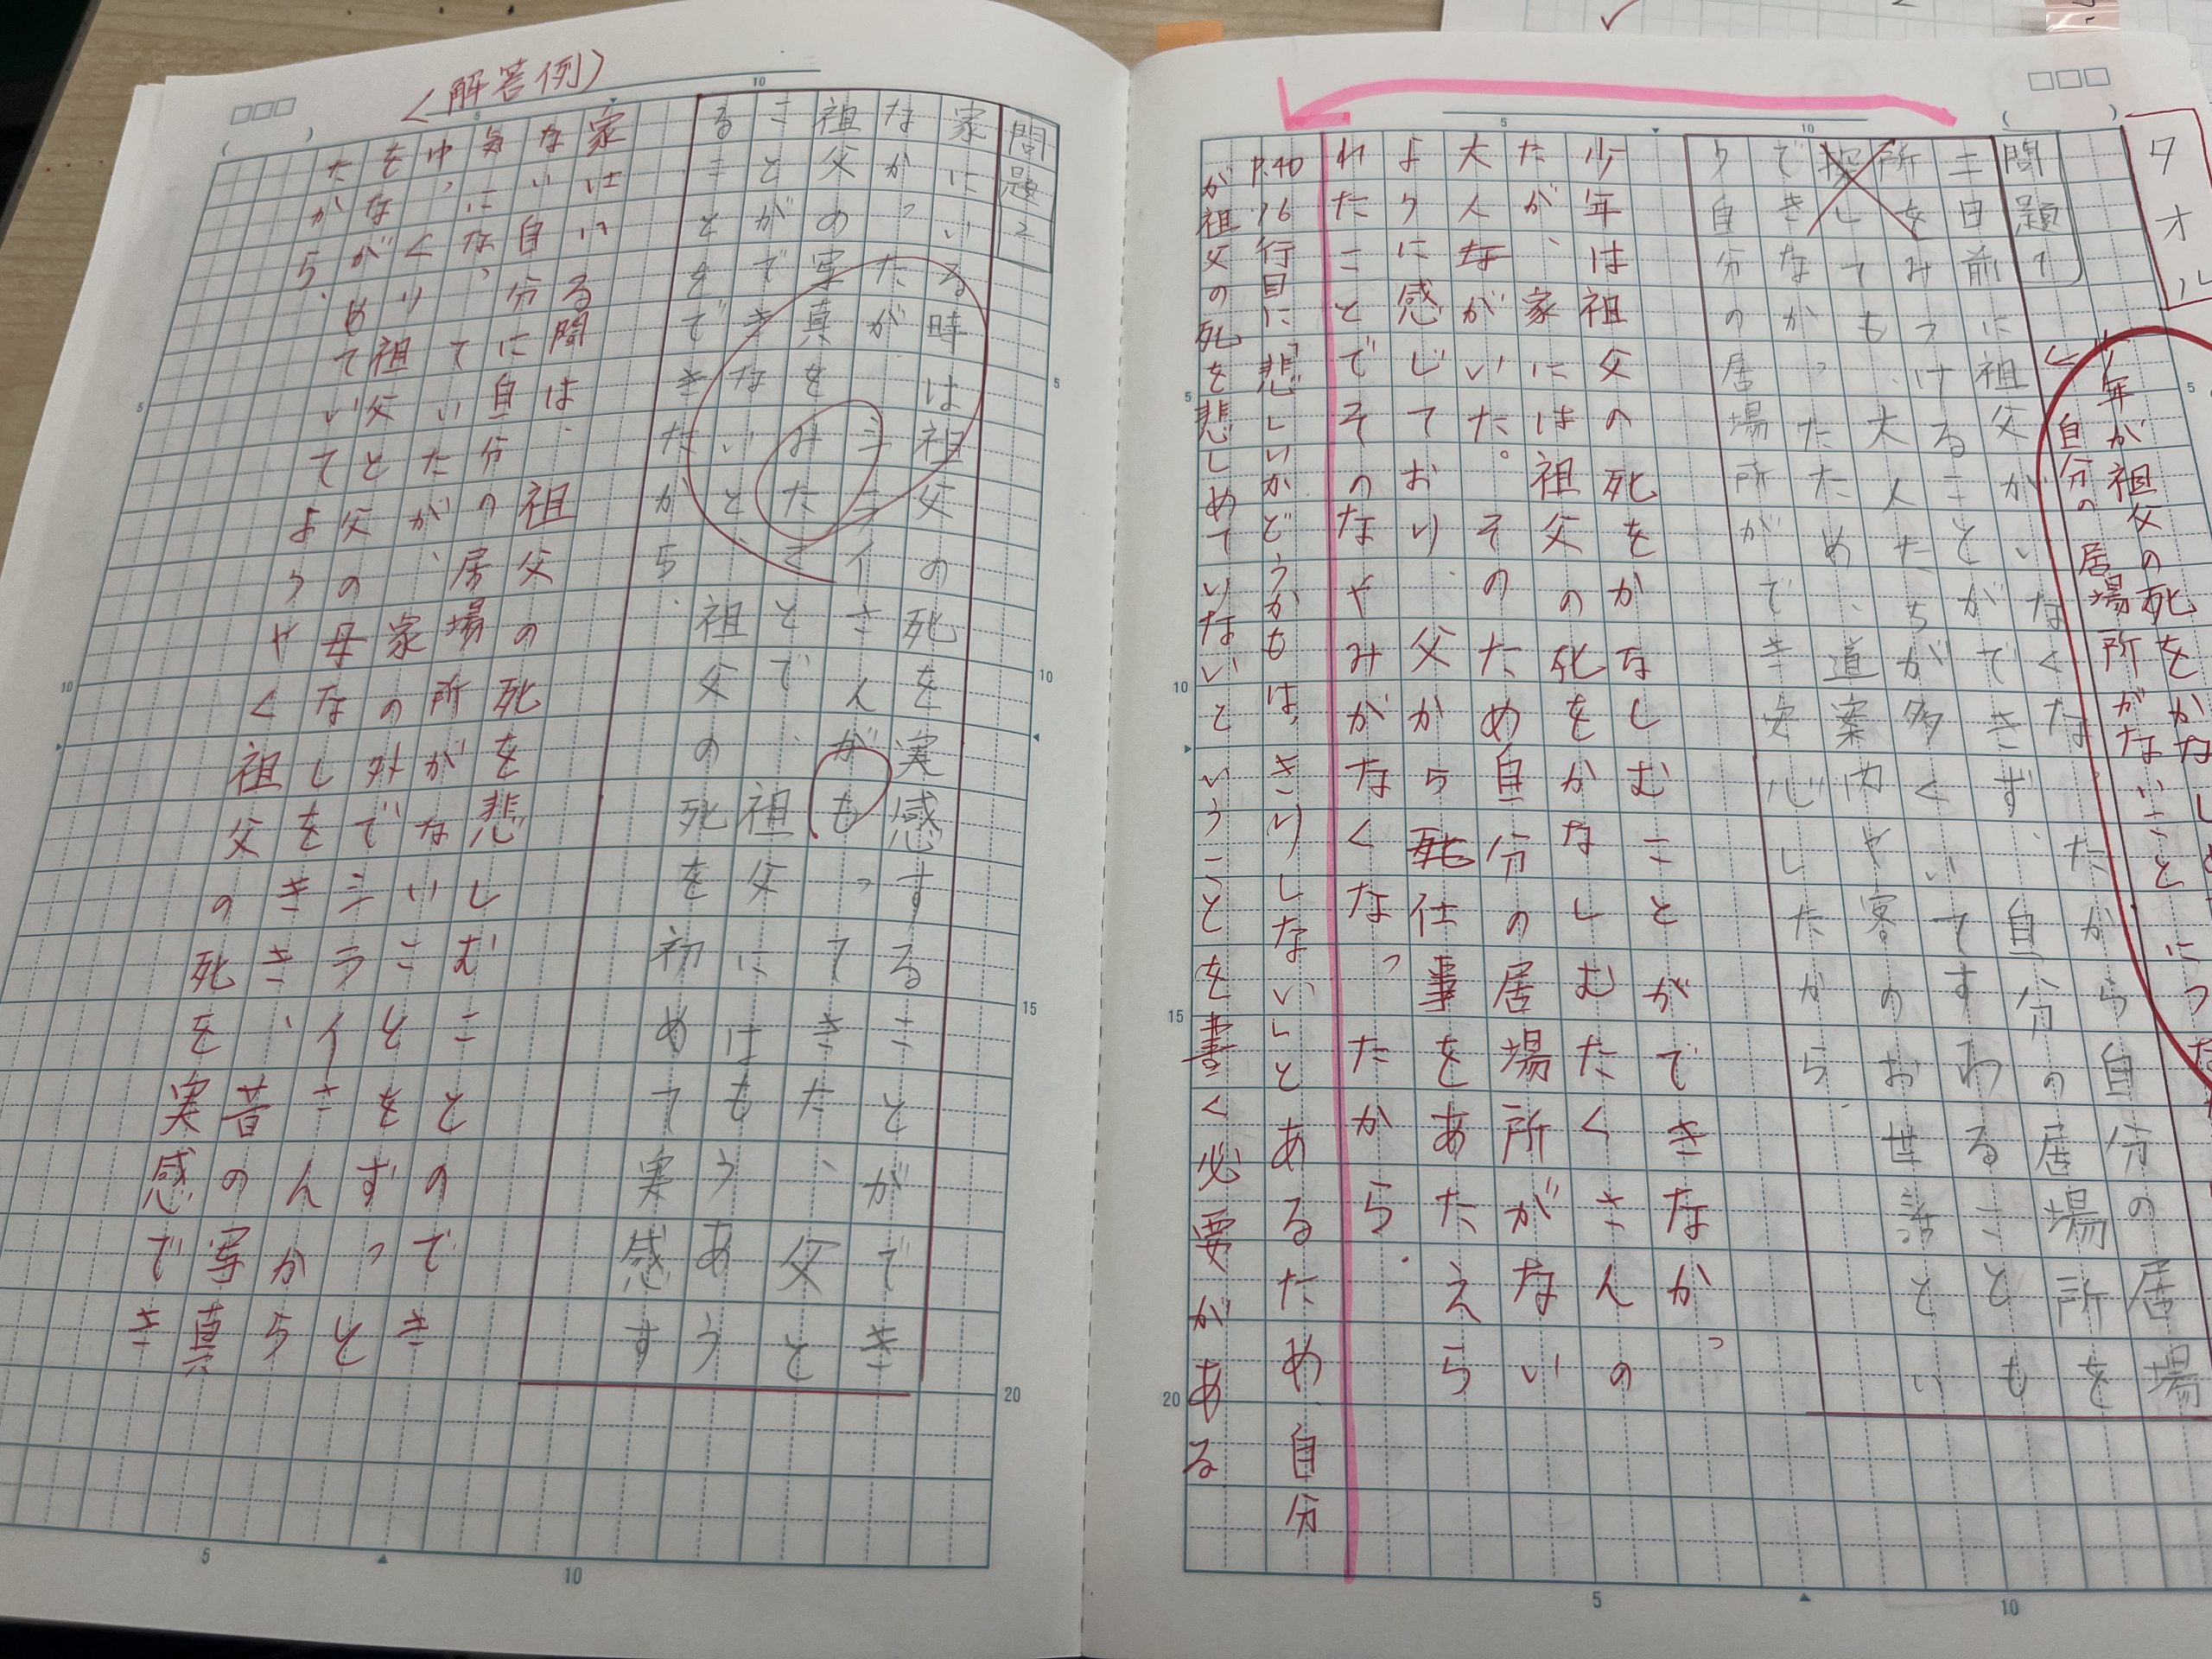 タオル
年が祖父の死をかなし
自分の居場所がないこと につ
問題1
二日前に祖父がいなくなったから自分の居場
所をみつけることができず、自分の居場所を
探しても、大人たちが多くいてすわることも
できなかったため、道案内や客のお世話とい
う自分の居場所ができ安心したから。
少年は祖父の死をかなしむことができなかっ
たが、家には祖父の死をかなしむたくさんの
大人がいた。そのため自分の居場所がない
ように感じており、父から仕事をあたえら
れたことでそのなやみがなくなったから。
P.40 16行目に「悲しいかどうかもはっきりしない」とあるため自分
が祖父の死を悲しめていないということを書く必要がある
問題2
家にいる時は祖父の死を実感することができ
なかったが、シライさんがもってきた、父と
祖父の写真をみたことで、祖父にはもうあう
ことができないと、祖父の死を初めて実感す
ることをできたから。
〈解答例〉
家にいる間は、祖父の死を悲しむことのでき
ない自分に自分の居場所がないことをずっと
気になっていたが、家の外でシライさんから
ゆっくり祖父と父のはなしをきき、昔の写真
をながめていてようやく祖父の死を実感でき
たから。